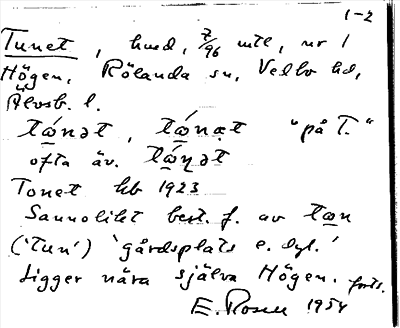 1-2
Tunet, hmd, 7/96 mtl, nr 1
Högen, Rölanda sn, Vedbo hd,
Älvsb. l.
"på T."
ofta äv.
Tonet hb 1923
Sannolikt best. f. av
('Tun') 'gårdsplats e. dyl.'
Ligger nära själva Högen. forts.
E. Rosell 1954